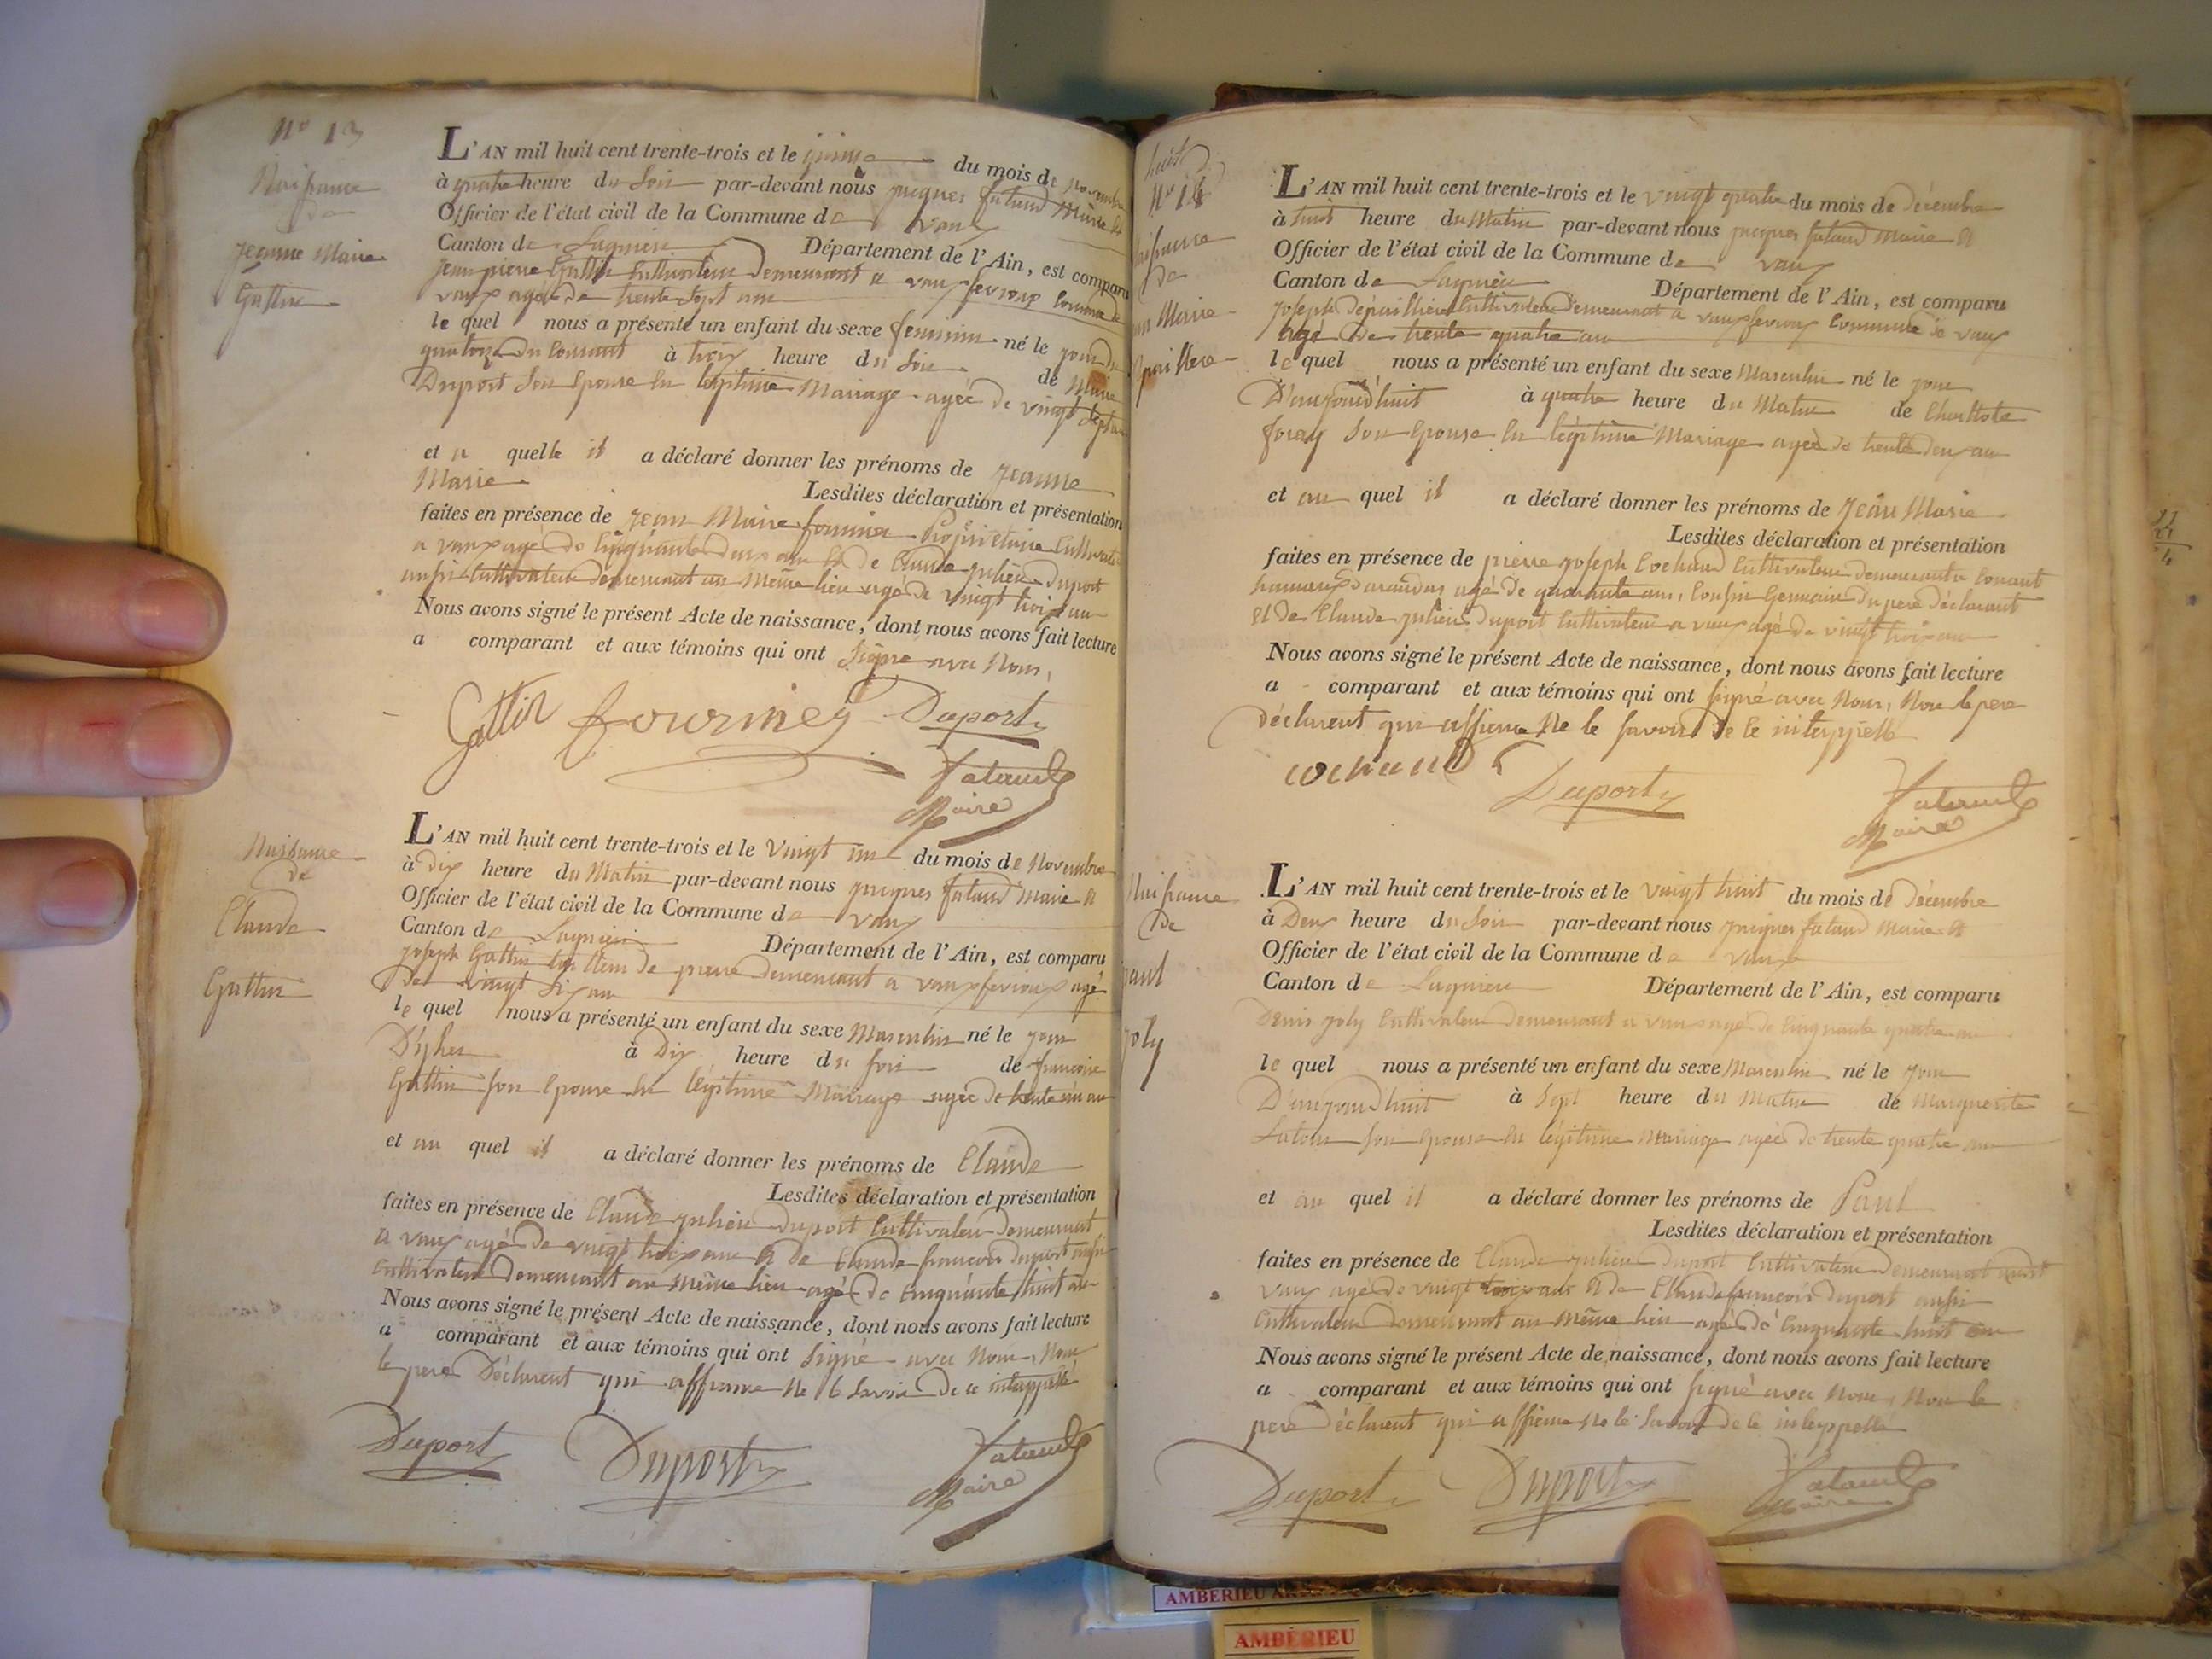 N° 13
Naissance
de
Jeanne Marie
Gattin
L'AN mil huit cent trente-trois et le quinze du mois de Novembre
à quatre heure du Soir par-devant nous jacques fataud Maire et
Officier de l'état civil de la Commune de vaux
Canton de Lagnieu Département de l'Ain, est comparu
jean pierre Gattin Cultivateur demeurant a vaux fevroux Commune de
vaux agé de trente sept ans
le quel nous a présenté un enfant du sexe feminin né le jour du
quatorze du Courant à trois heure du Soir de Marie
Duport Son Epouse en légitime Mariage agée de vingt Sept ans
et a quelle il a déclaré donner les prénoms de jeanne
Marie Lesdites déclaration et présentation
faites en présence de jean Marie fournier Propriétaire Cultivateur
a vaux agé de Cinquante deux ans et de Claude julien duport
aussi Cultivateur demeurant au Même lieu agé de vingt trois ans
Nous avons signé le présent Acte de naissance, dont nous avons fait lecture
a comparant et aux témoins qui ont Signé avec Nous,
Gattin fouriney Duport
fataud
Maire
Naissance
de
Claude
Gattin
L'AN mil huit cent trente-trois et le Vingt un du mois de Novembre
à dix heure du Matin par-devant nous jacques fataud Maire et
Officier de l'état civil de la Commune de vaux
Canton de Lagnieu Département de l'Ain, est comparu
joseph Gattin de pierre demeurant a vaux fevroux agé
de vingt Six ans
le quel nous a présenté un enfant du sexe Masculin né le jour
D'yher à Dix heure du soir de francoise
Gattin son Epouse en légitime Mariage agée de trente un ans
et au quel il a déclaré donner les prénoms de Claude
Lesdites déclaration et présentation
faites en présence de Claude julien duport Cultivateur demeurant
a vaux agé de vingt trois ans et de Claude francois duport aussi
Cultivateur demeurant au Même lieu agé de Cinquante huit ans
Nous avons signé le présent Acte de naissance, dont nous avons fait lecture
a comparant et aux témoins qui ont Signé avec Nous, Non
le pere Déclarent qui affirme Ne le Savoir de ce interppellé
Duport Duport fataud
Maire
N° 14
aissance
de
an Marie
paillere
L'AN mil huit cent trente-trois et le vingt quatre du mois de décembre
à huit heure du Matin par-devant nous jacques fataud Maire et
Officier de l'état civil de la Commune de vaux
Canton de Lagnieu Département de l'Ain, est comparu
joseph Cultivateur demeurant a vaux fevroux Commune de vaux
agé de trente quatre ans
le quel nous a présenté un enfant du sexe Masculin né le jour
D'aujourd'huit à quatre heure du Matin de Charllote
foray Son Epouse en légitime Mariage agée de trente deux ans
et au quel il a déclaré donner les prénoms de jean Marie
Lesdites déclaration et présentation
faites en présence de pierre joseph Cochaud Cultivateur demeurant a Conant
d'arandas agé de quarante ans, Cousin Germain du pere déclarant
et de Claude julien duport Cultivateur a vaux agé de vingt trois ans
Nous avons signé le présent Acte de naissance, dont nous avons fait lecture
a comparant et aux témoins qui ont signé avec Nous, Non le pere
déclarent qui affirme Ne le savoir de ce interppellé
cochaud Duport fataud
Maire
Naissance
de
paul
joly
L'AN mil huit cent trente-trois et le vingt huit du mois de décembre
à Deux heure du Soir par-devant nous jacques fataud Maire et
Officier de l'état civil de la Commune de vaux
Canton de Lagnieu Département de l'Ain, est comparu
Denis joly Cultivateur demeurant a vaux agé de Cinquante quatre ans
le quel nous a présenté un enfant du sexe Masculin né le jour
D'aujourd'huit à Sept heure du Matin de Marguerite
son Epouse en légitime Mariage agée de trente quatre ans
et au quel il a déclaré donner les prénoms de Paul
Lesdites déclaration et présentation
faites en présence de Claude julien duport Cultivateur demeurant audit
vaux agé de vingt trois ans et de Claude francois duport aussi
Cultivateur demeurant au Même lieu agé de Cinquante huit ans
Nous avons signé le présent Acte de naissance, dont nous avons fait lecture
a comparant et aux témoins qui ont signé avec Nous, Non le
pere déclarent qui affirme Ne le Savoir de ce interppellé
Duport Duport fataud
Maire
AMBERIEU
AMBERIEU